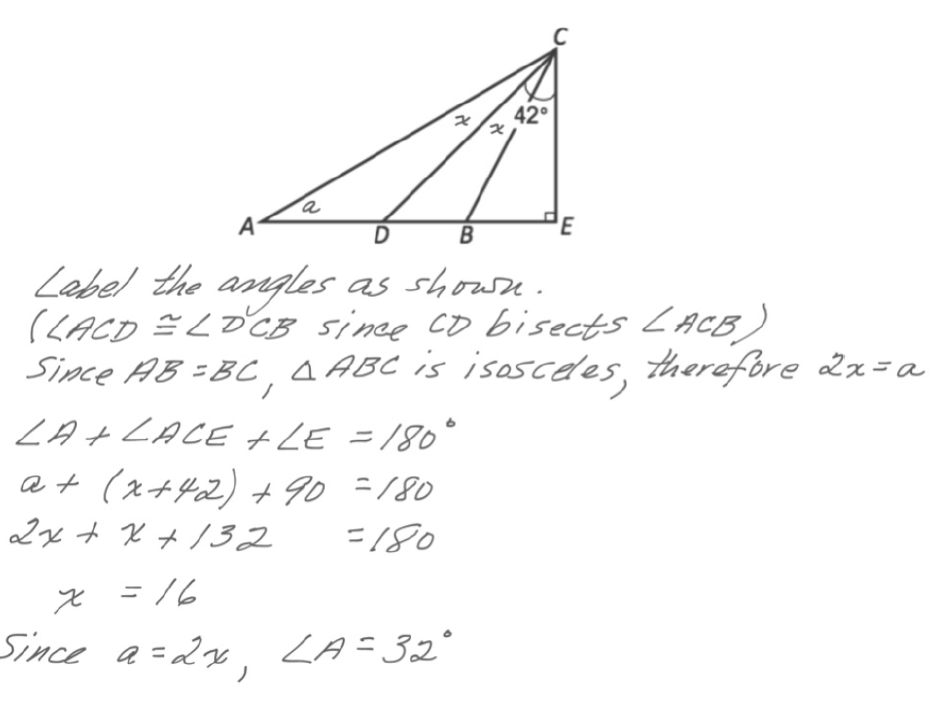 C
x
x 42°
a
A D B E
Label the angles as shown.
(∠ACD ≅ ∠DCB since CD bisects ∠ACB)
Since AB = BC, △ABC is isosceles, therefore 2x = a
∠A + ∠ACE + ∠E = 180°
a + (x+42) + 90 = 180
2x + x + 132 = 180
x = 16
Since a = 2x, ∠A = 32°